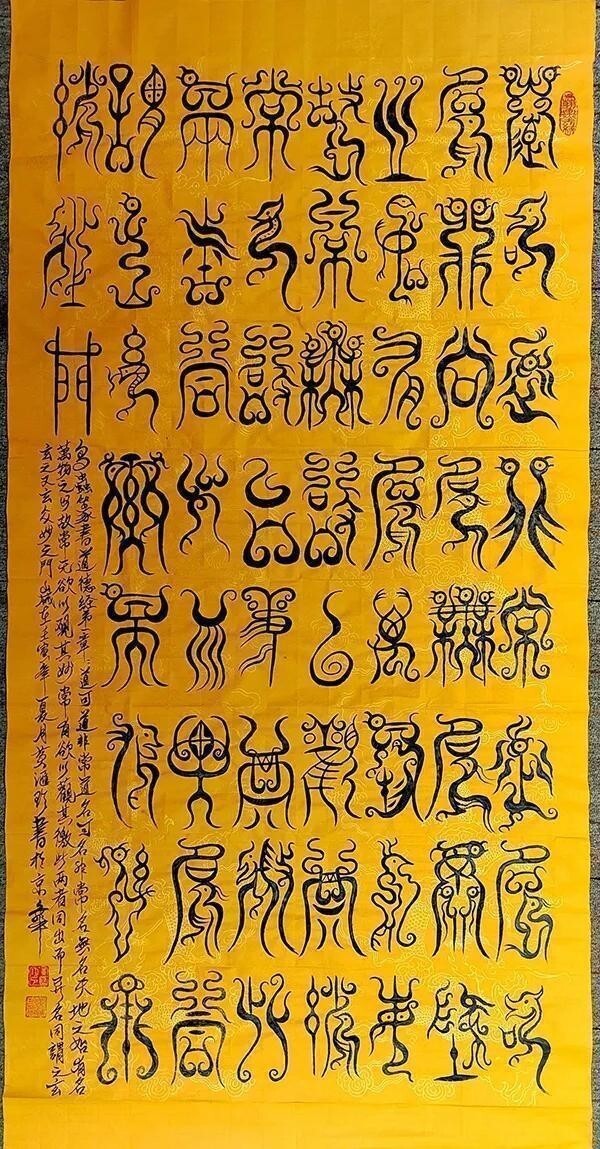 道可道非常道名可
名非常名無名天地
之始有名萬物之母
故常無欲以觀其妙
常有欲以觀其徼此
兩者同出而異名同
謂之玄玄之又玄眾
妙之門
鳥蟲篆書道德经第一章：道可道非常道名可名非常名無名天地之始有名
萬物之母故常无欲以觀其妙常有欲以觀其徼此兩者同出而异名同謂之玄
玄之又玄众妙之門 歲在壬寅年夏月黄滙書於京華